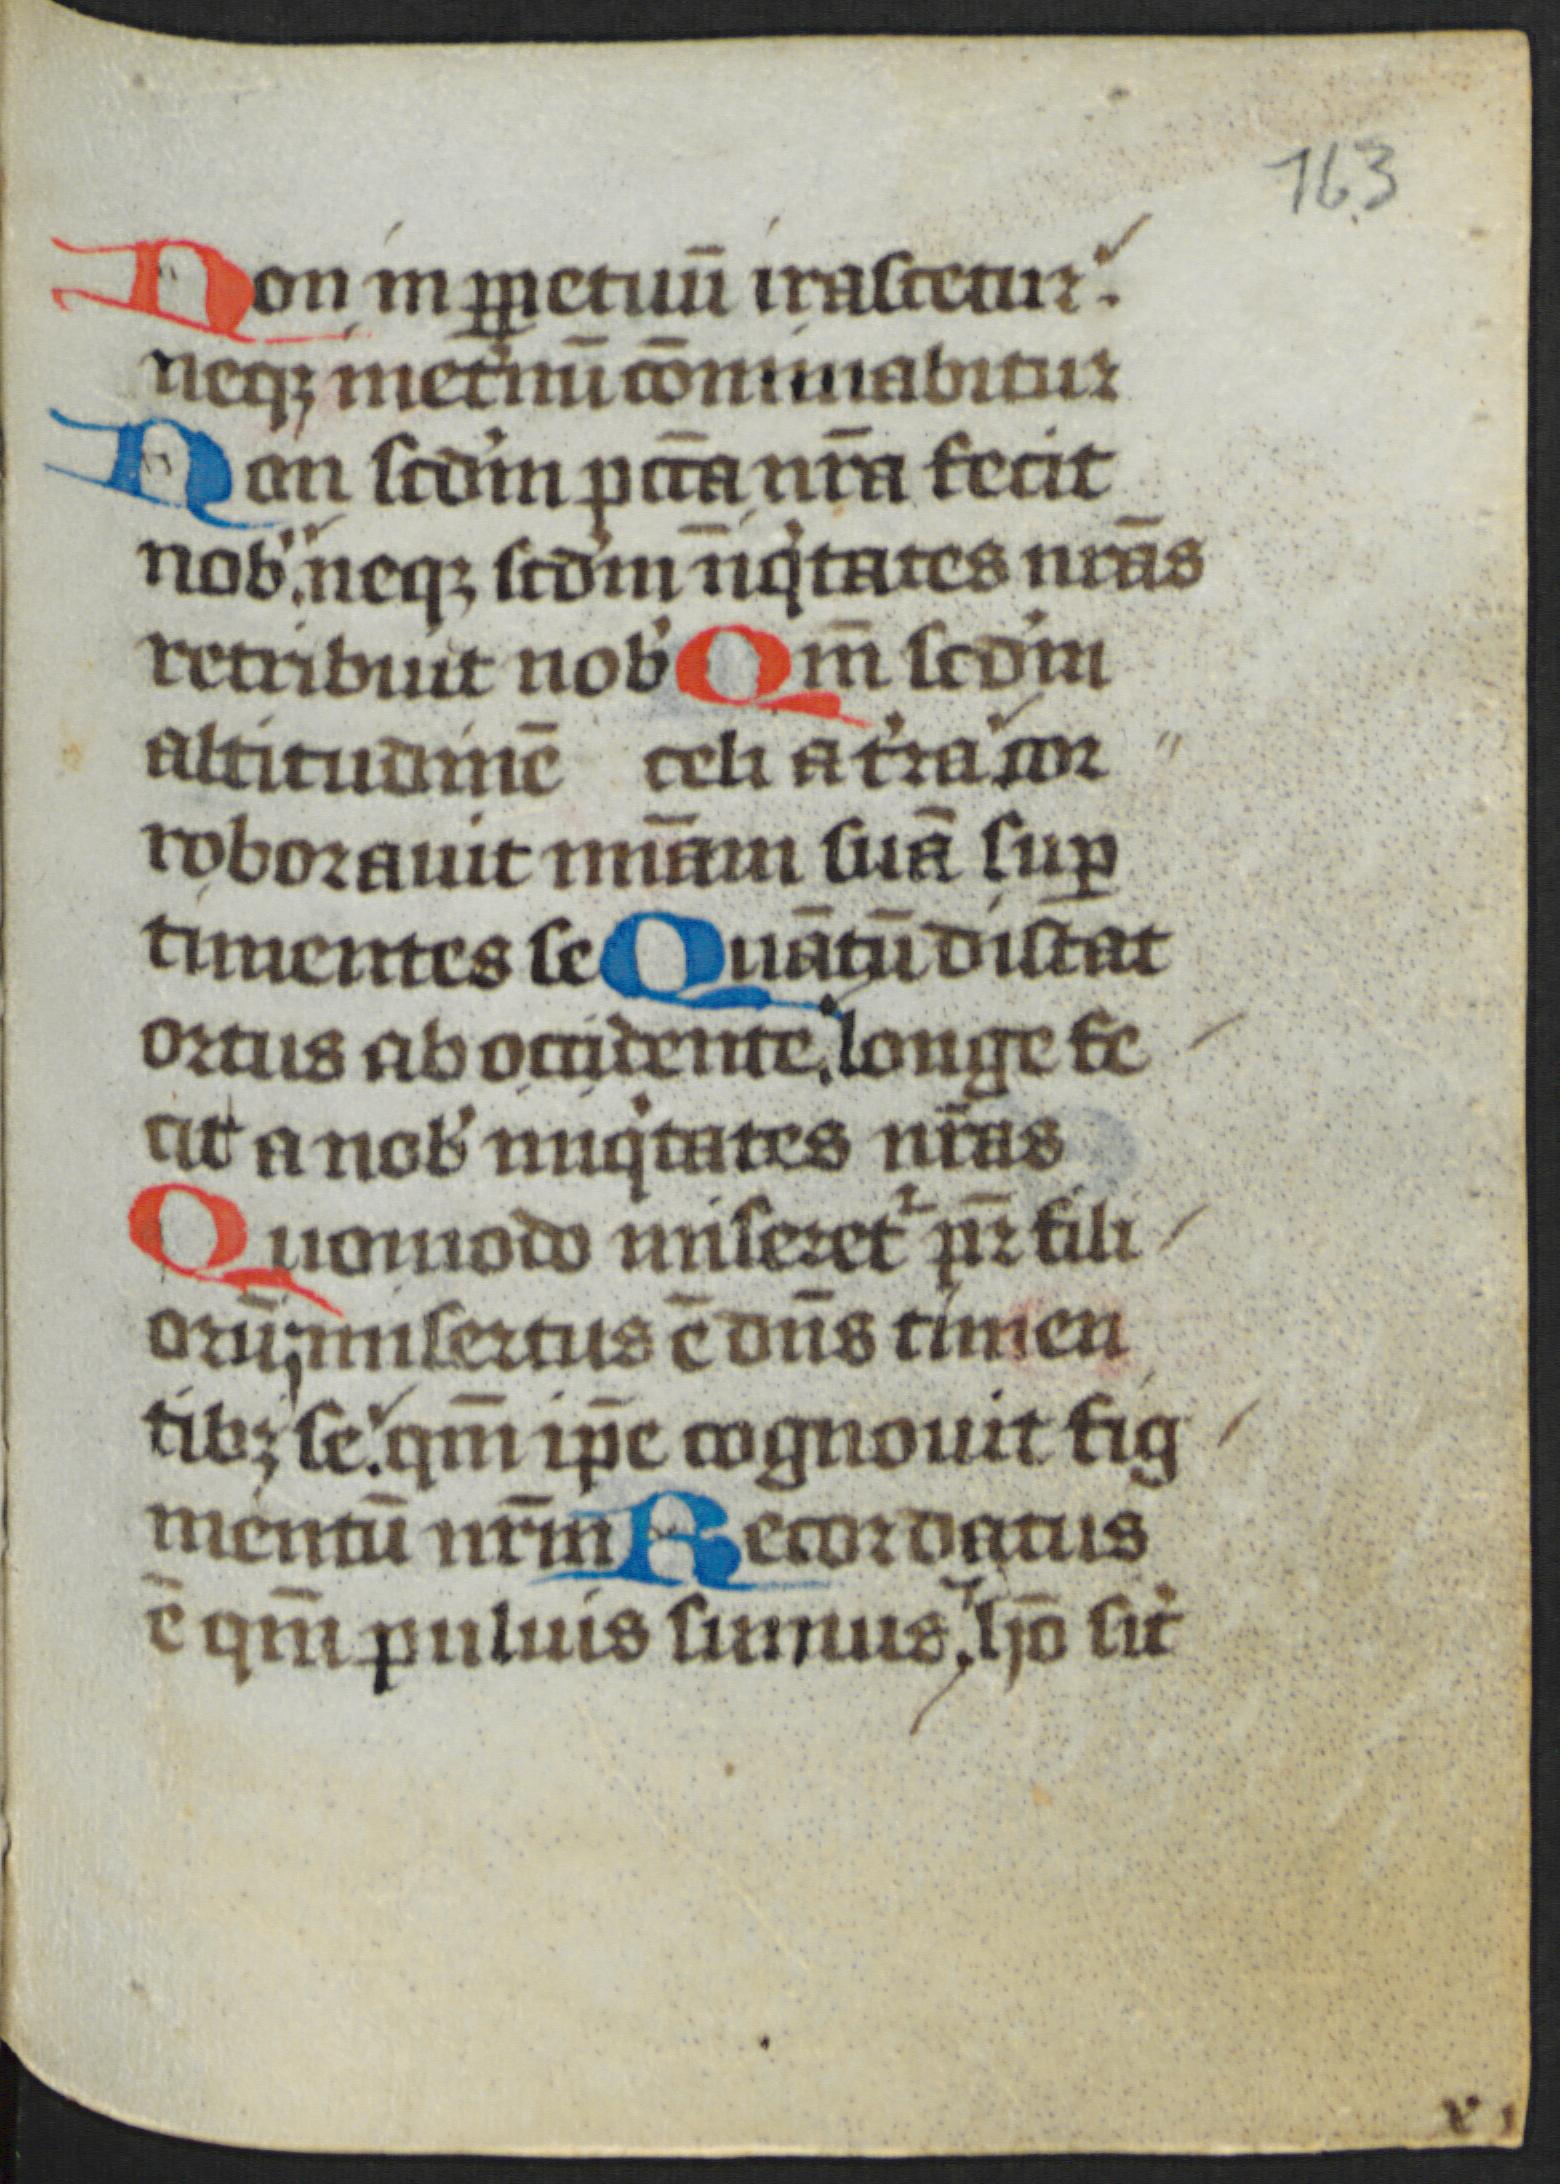 163
Non in ꝑpetuū irascetur.
neqꝫ inet̾nū cōminabitur
Non scd̾m pct̄a nr̄a fecit
nob̾. neqꝫ scd̾m iniqͥtates nrās
retribuit nob̾ Qm̄ scd̾m
altitudinē celi a t̾ra cor
roborauit mīam suā suꝑ
timentes se Quātū distat
ortus ab occidente. longe fe
cit a nob̾ iniqͥtates nr̄as
Quomodo miseret᷑ pr̄ fili
orū, misertus ē dn̄s timen
tibꝫ se. qm̄ ip̄e cognouit fig
mentū nr̄m Recordatus
ē qm̄ puluis sumus. hō sic̾